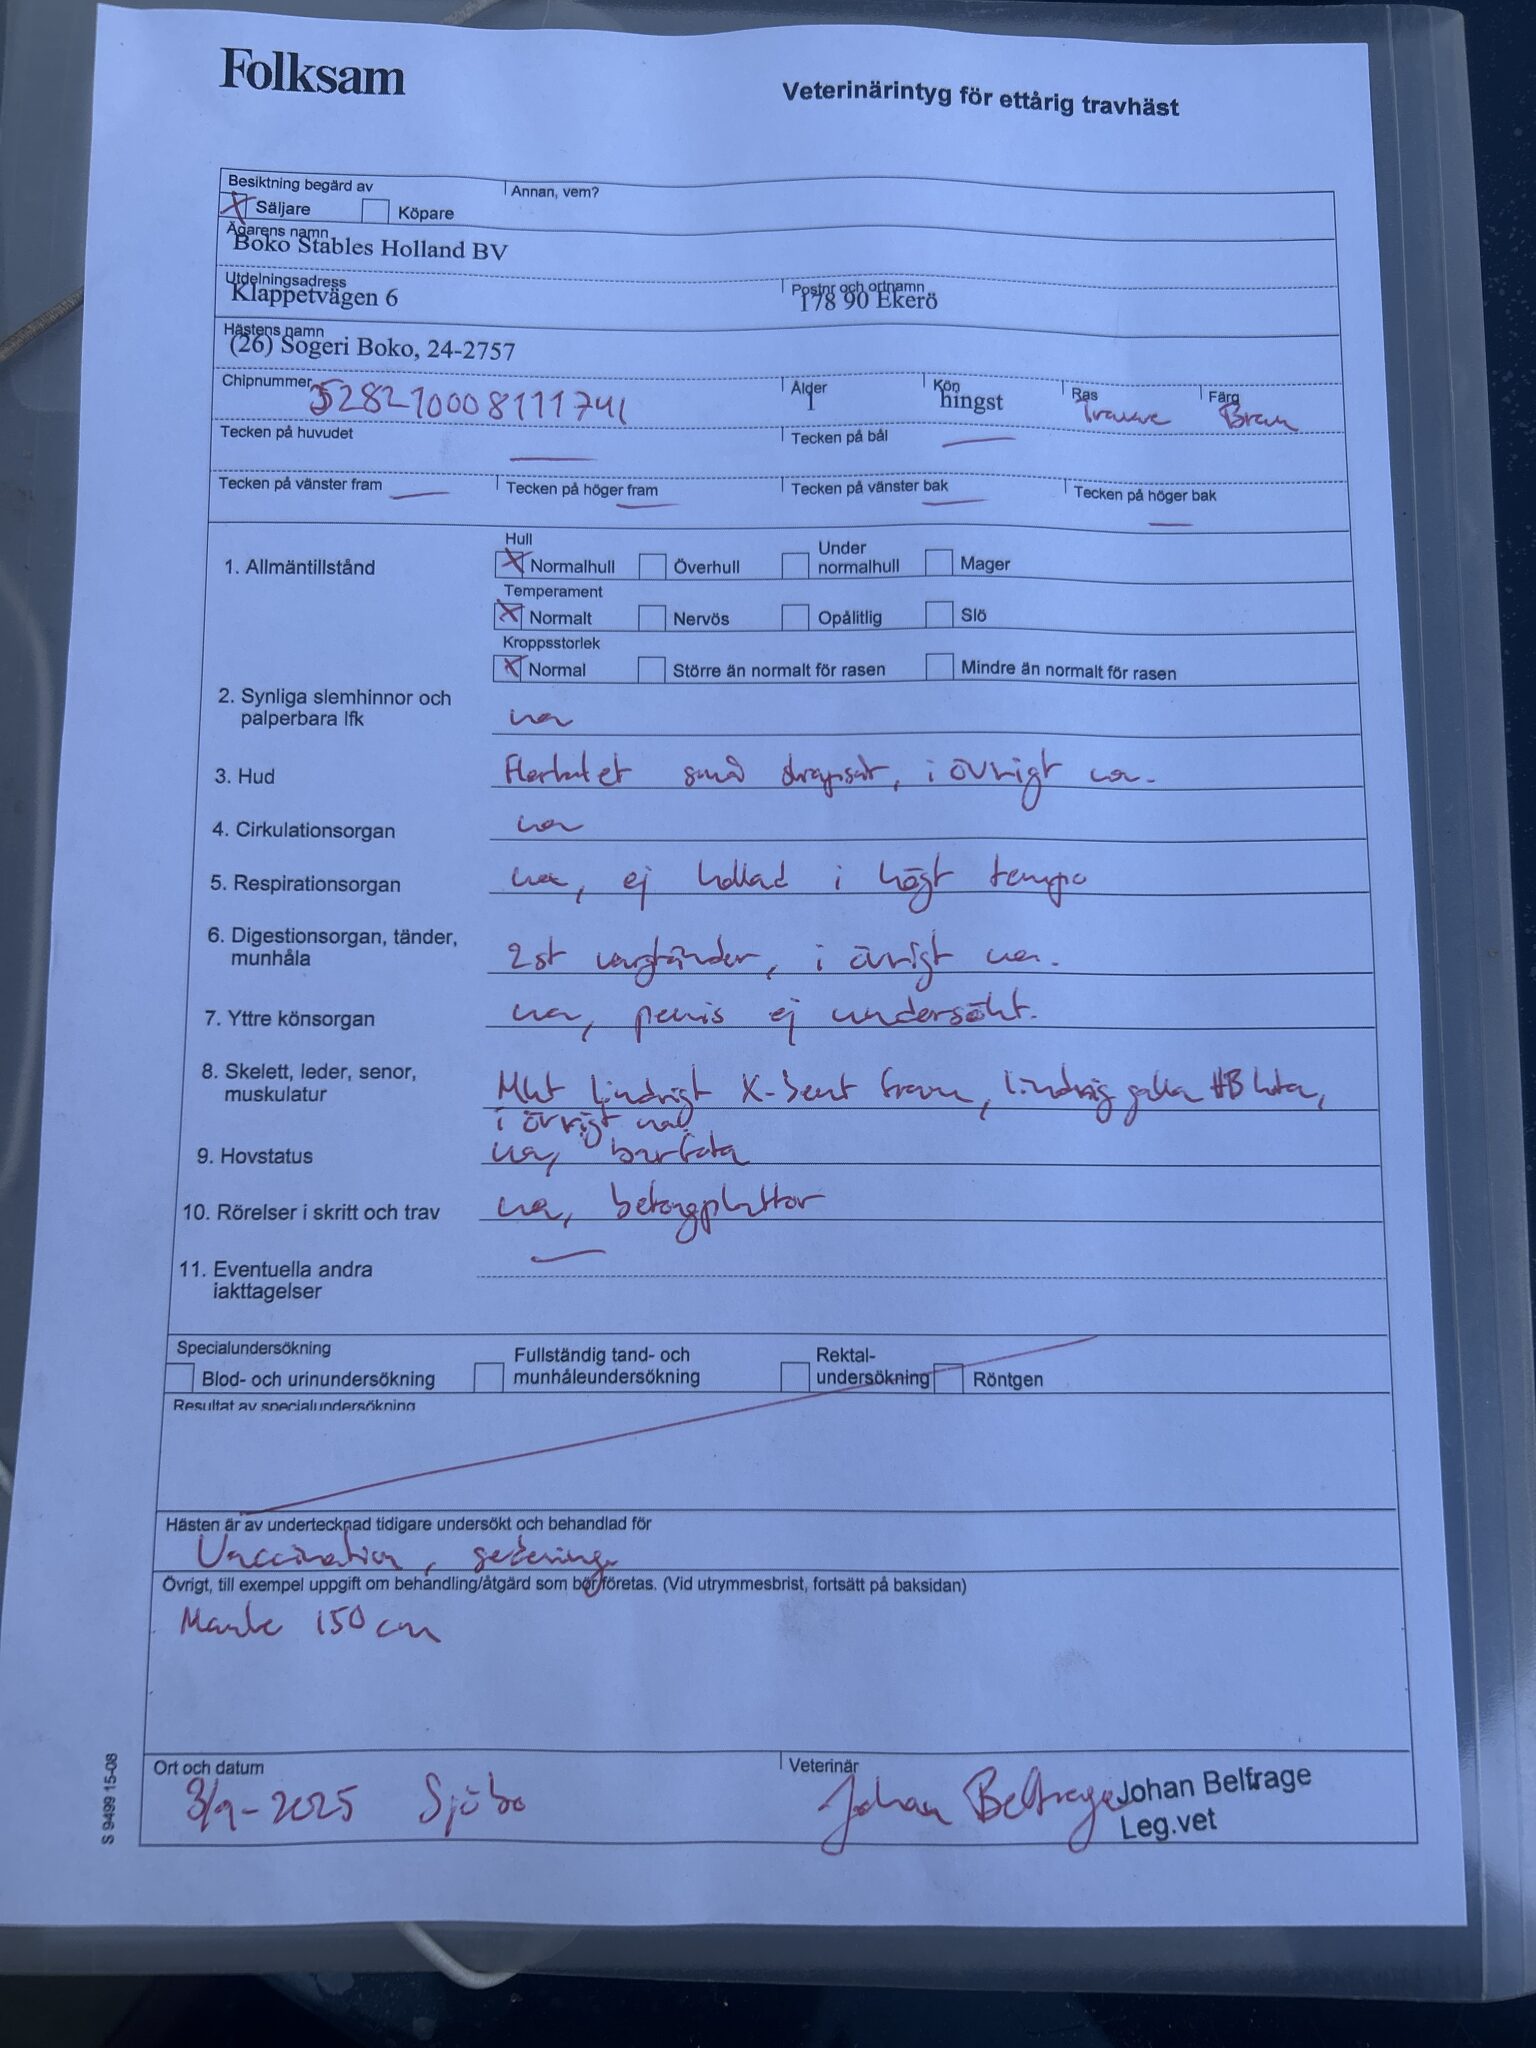 Folksam
Veterinärintyg för ettårig travhäst
Besiktning begärd av
Annan, vem?
X Säljare Köpare
Ägarens namn
Boko Stables Holland BV
Utdelningsadress
Postnr och ortnamn
Klappetvägen 6
178 90 Ekerö
Hästens namn
(26) Sogeri Boko, 24-2757
Chipnummer Ålder Kön Ras Färg
528210008111741 1 hingst Travare Brun
Tecken på huvudet
Tecken på bål
Tecken på vänster fram
Tecken på höger fram
Tecken på vänster bak
Tecken på höger bak
1. Allmäntillstånd
Hull
X Normalhull Överhull Under normalhull Mager
Temperament
X Normalt Nervös Opålitlig Slö
Kroppsstorlek
X Normal Större än normalt för rasen Mindre än normalt för rasen
2. Synliga slemhinnor och
palperbara lfk
ua
3. Hud
Flertalet små skrapsår, i övrigt ua.
4. Cirkulationsorgan
ua
5. Respirationsorgan
ua, ej kollad i högt tempo
6. Digestionsorgan, tänder,
munhåla
2st vargtänder, i övrigt ua.
7. Yttre könsorgan
ua, penis ej undersökt.
8. Skelett, leder, senor,
muskulatur
Mkt lindrigt X-bent fram, lindrig galla HB kota,
i övrigt ua.
9. Hovstatus
ua, barfota
10. Rörelser i skritt och trav
ua, betongplattor
11. Eventuella andra
iakttagelser
Specialundersökning
Blod- och urinundersökning
Fullständig tand- och
munhåleundersökning
Rektal-
undersökning
Röntgen
Resultat av specialundersökning
Hästen är av undertecknad tidigare undersökt och behandlad för
Vaccination, sedering
Övrigt, till exempel uppgift om behandling/åtgärd som bör företas. (Vid utrymmesbrist, fortsätt på baksidan)
Manke 150 cm
Ort och datum
Veterinär
3/9-2025 Sjöbo
Johan Belfrage
Johan Belfrage
Leg.vet
S 9499 15-08